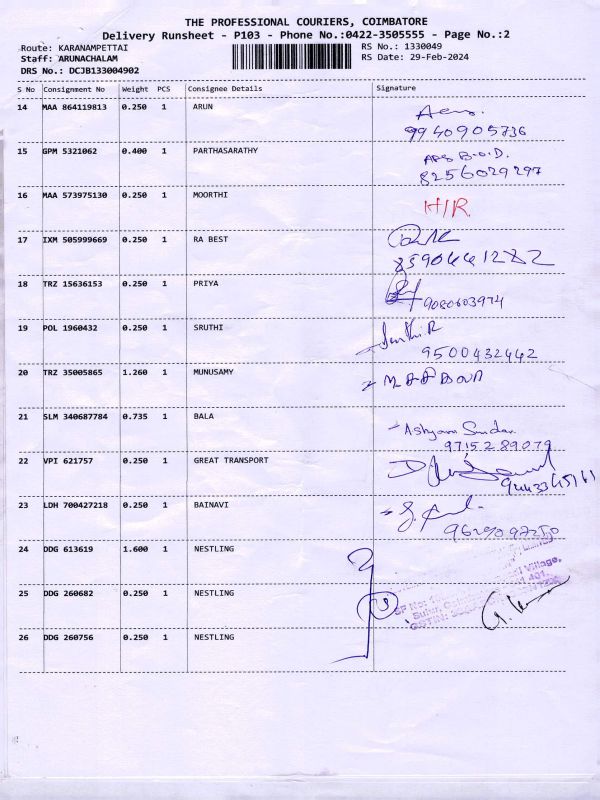 THE PROFESSIONAL COURIERS, COIMBATORE
Delivery Runsheet - P103 - Phone No.:0422-3505555 - Page No.:2
Route: KARANAMPETTAI RS No.: 1330049
Staff: ARUNACHALAM RS Date: 29-Feb-2024
DRS No.: DCJB133004902
S No Consignment No Weight PCS Consignee Details Signature
14 MAA 864119813 0.250 1 ARUN
9940905736
15 GPM 5321062 0.400 1 PARTHASARATHY
8256029297
16 MAA 573975130 0.250 1 MOORTHI H/R.
17 IXM 505999669 0.250 1 RA BEST
18 TRZ 15636153 0.250 1 PRIYA
9080603974
19 POL 1960432 0.250 1 SRUTHI
9500432442
20 TRZ 35005865 1.260 1 MUNUSAMY
21 SLM 340687784 0.735 1 BALA
9715289079
22 VPI 621757 0.250 1 GREAT TRANSPORT
23 LDH 700427218 0.250 1 BAINAVI
24 DDG 613619 1.600 1 NESTLING
Village,
SF No:
25 DDG 260682 0.250 1 NESTLING
26 DDG 260756 0.250 1 NESTLING